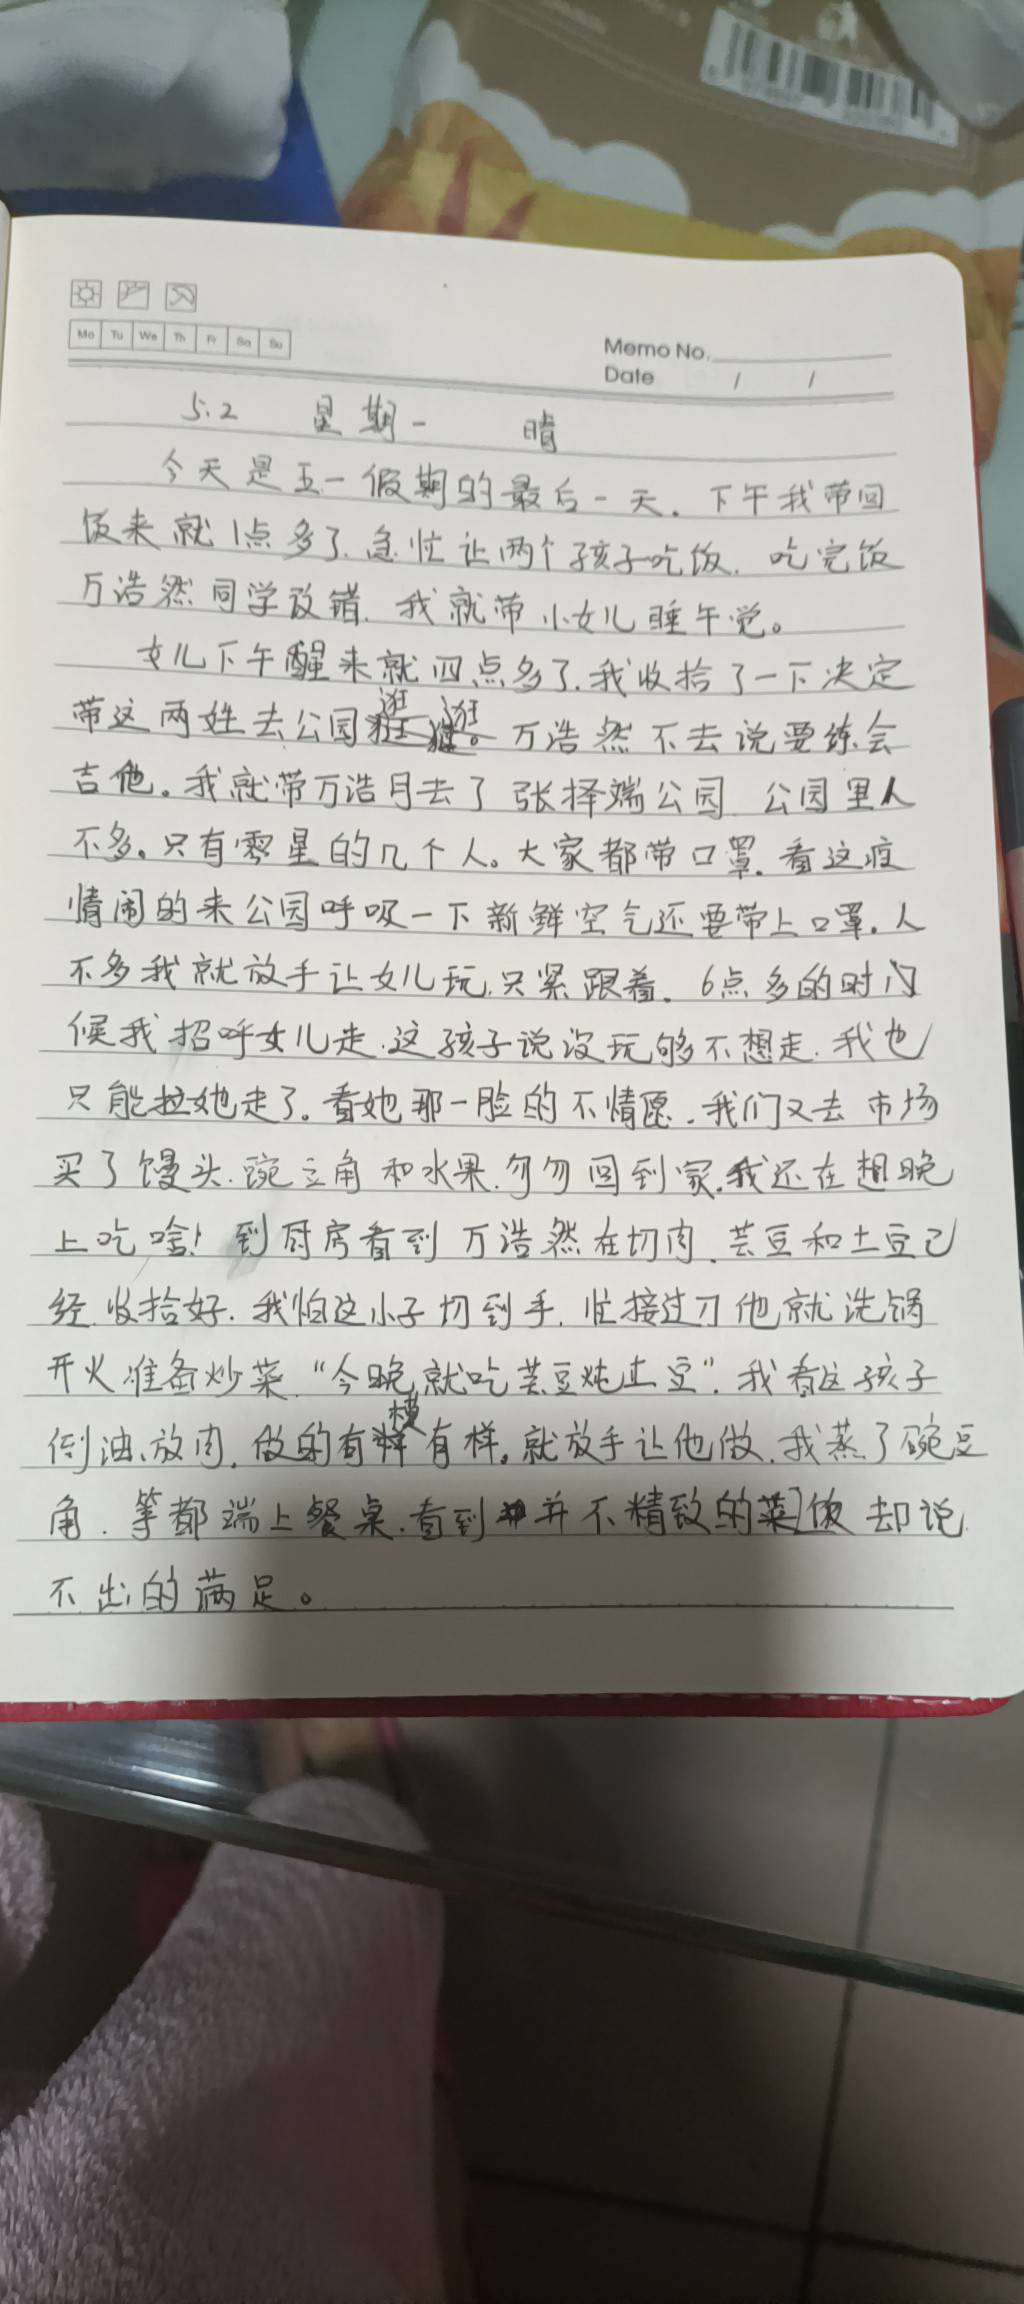 Mo Tu We Th Fr Sa Su
Memo No.
Date / /
5.2 星期一 晴
今天是五一假期的最后一天。下午我带回
饭来就1点多了.急忙让两个孩子吃饭.吃完饭
万浩然同学改错.我就带小女儿睡午觉。
女儿下午醒来就四点多了.我收拾了一下决定
带这两姓去公园逛逛。万浩然不去说要练会
吉他。我就带万浩月去了张择端公园 公园里人
不多。只有零星的几个人。大家都带口罩.看这疫
情闹的来公园呼吸一下新鲜空气还要带上口罩.人
不多我就放手让女儿玩.只紧跟着.6点多的时
候我招呼女儿走.这孩子说没玩够不想走.我也
只能拉她走了。看她那一脸的不情愿.我们又去市场
买了馒头.豌豆角和水果.匆匆回到家.我还在想晚
上吃啥!到厨房看到万浩然在切肉.芸豆和土豆已
经收拾好.我怕这小子切到手.忙接过刀他就洗锅
开火准备炒菜."今晚就吃芸豆炖土豆".我看这孩子
倒油、放肉.做的有模有样。就放手让他做.我蒸了豌豆
角.等都端上餐桌.看到并不精致的菜饭却说
不出的满足。